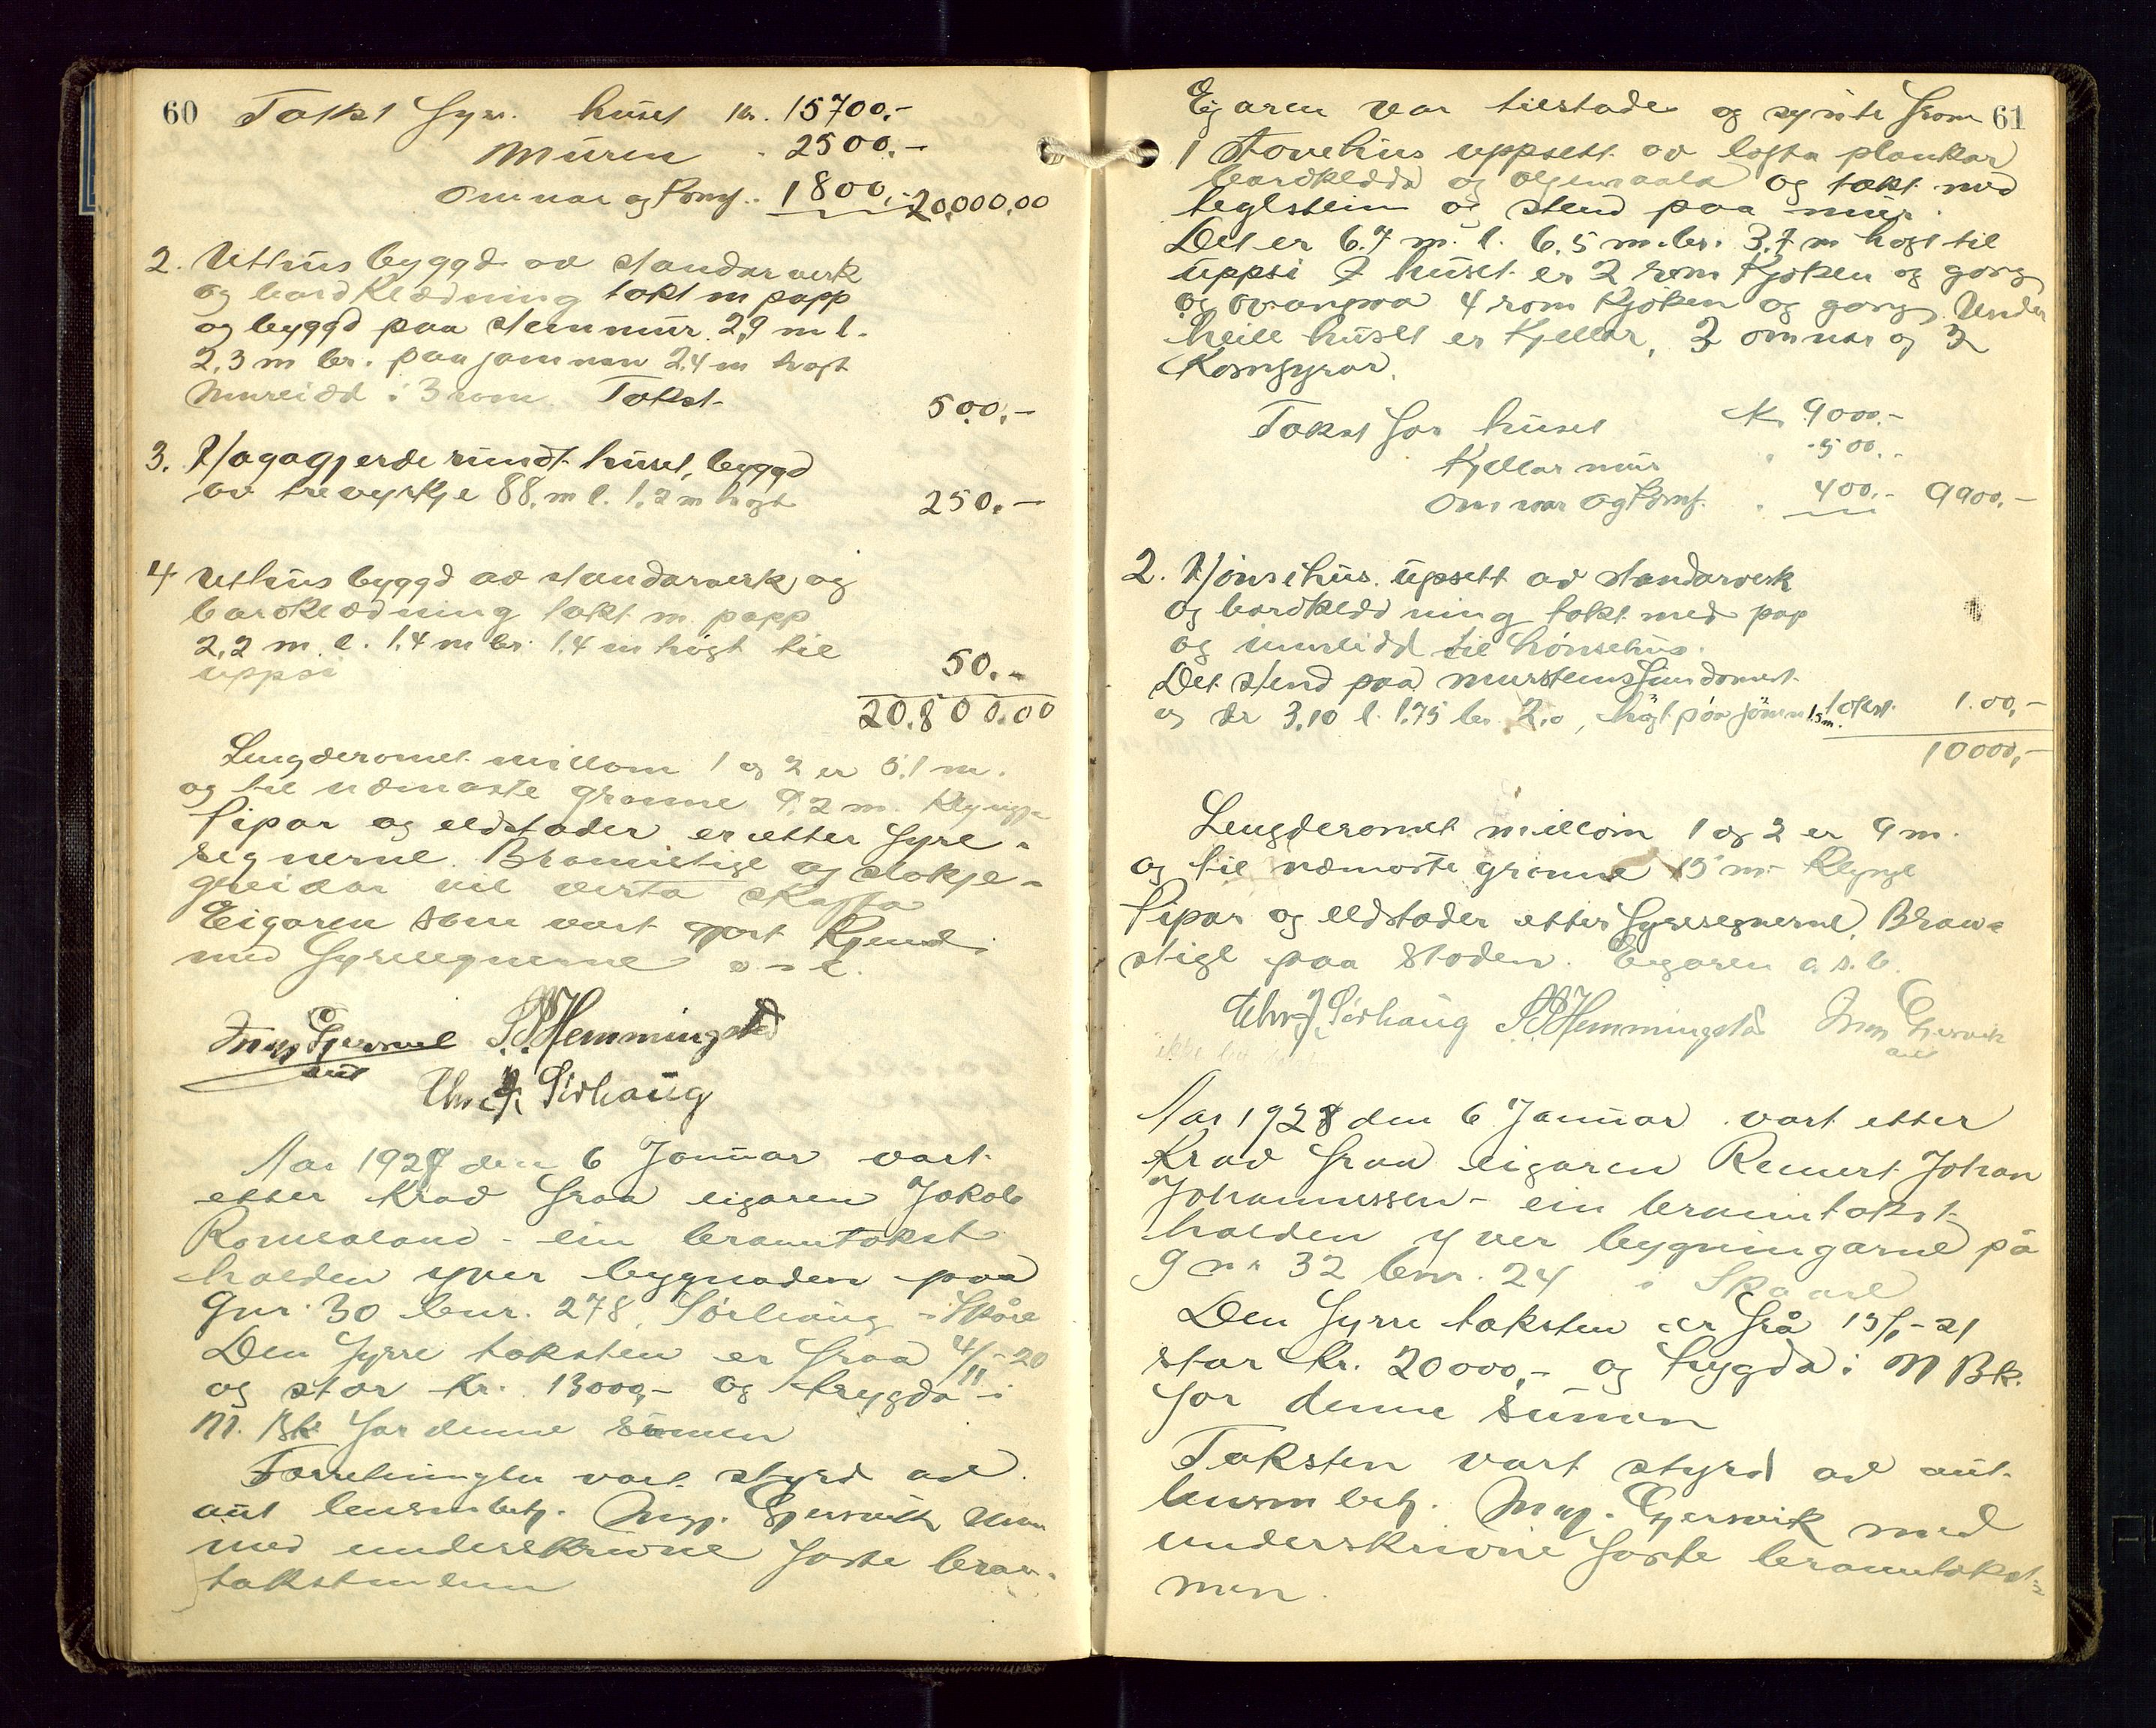 60 Takst fyr. huset kr. 15700.-
Muren - 2500.-
Omnar og Komf.. 1800.- 20,000,00
2. Uthus byggd av standarverk
og bordklædning takt m papp
og byggd paa stenmur 2,9 m l.
2,3 m br. paa jamnen 2,4 m høgt
Innreidd i 3 rom Takst 500.-
3. Hagagjerde rundt huset, byggd
av trevyrkje 88. m l. 1,2 m høgt 250.-
4 Uthus byggd av standarverk og
bordklædning takt m. papp
2,2 m. l. 1.4 m br. 1.4 m høgt til
uppsi 50.-
20.800.00
Lengderomet millom 1 og 2 er 5.1 m.
og til næmaste granne 9,2 m.
Pipar og eldstader er etter fyre-
segnerne. Brannstige og slokje-
greidar vil verta skaffa
Eigaren som vart gjort kjend
med fyresegnerne a s b.
Ing. Gjersvik S.S. Hemmingstad
aut
Chr. J. Sørhaug
Aar 1928 den 6 Januar vart
etter krav fraa eigaren Jakob
Ramsland - ein branntakst
halden yver bygnaden paa
Gnr. 30 bnr. 278, Sørhaug i Skåre
Den fyrre taksten er fraa 4/11-20
og stor kr. 13000,- og trygda i
N. Bk for denne sumen
Forretningen vart styrd av
aut lensm betj. Ing. Gjersvik
med underskrivne faste bran-
takstmenn
Eigaren var tilstade og synte fram 61
1 Stovehus uppsett av lafta plankar
bordkledd og oljemaala og takt med
teglstein og stend paa mur.
Det er 6.7 m. l. 6,5 m. br. 3.7 m høgt til
uppsi I huset er 2 rom kjøken og gang
og ovanpaa 4 rom kjøken og gang. Under
heile huset er kjellar, 3 omnar og 2
Komfyrar.
Takst for huset kr 9000.-
Kjellar mur - 500.-
Omnar og Komf. - 400.- 9900.-
2. Hønsehus. upsett av standarverk
og bordkledning takt med pap
og innreidd til hønsehus.
Det stend paa murstensfundament
og er 3,10 l. 1.75 br. 2,0, høgt paa jamn 1.5 m. takst. 1.00,-
10000,-
Lengderomet millom 1 og 2 er 9 m.
og til næmaste granne 15 m.
Pipar og eldstader etter fyresegnerne. Brann-
stige paa staden. Eigaren a. s. b.
Chr. J. Sørhaug S.S. Hemmingstad Ing. Gjersvik
aut
Aar 1928 den 6 Januar vart etter
krav fraa eigaren Reinert Johan
Johannessen - ein branntakst
halden yver bygningarne på
gnr 32 bnr. 24 i Skaare
Den fyrre taksten er frå 13/1-21
stor kr. 20000,- og trygda i N Bk.
for denne sumen
Taksten vart styrd av aut.
lensm betj. Ing. Gjersvik med
underskrivne faste branntakst-
men